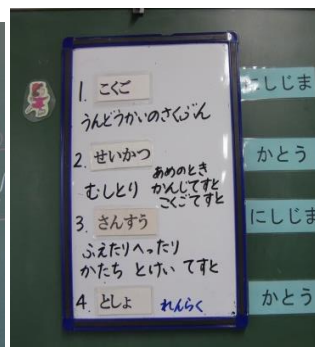 1. こくご
うんどうかいのさくぶん
2. せいかつ
むしとり
あめのとき
かんじてすと
こくごてすと
3. さんすう
ふえたりへったり
かたち とけい てすと
4 としょ れんらく
にしじま
かとう
にしじま
かとう